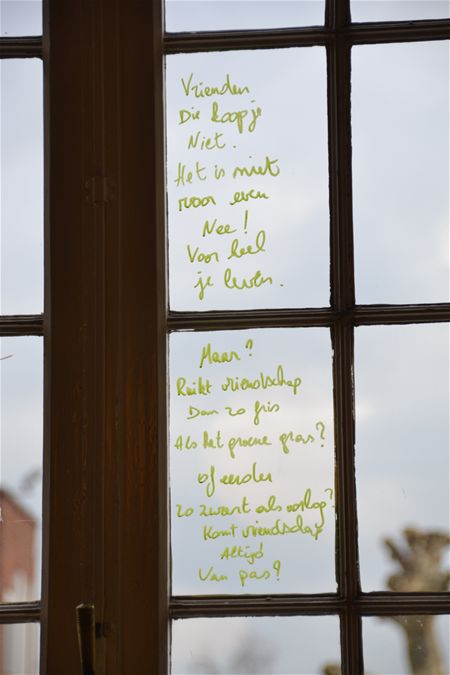 Vrienden
Die koop je
Niet.
Het is niet
voor even
Nee!
Voor heel
je leven.
Maar?
Ruikt vriendschap
Dan zo fris
Als het groene gras?
of eerder
zo zwart als oorlog?
Komt vriendschap
Altijd
Van pas?